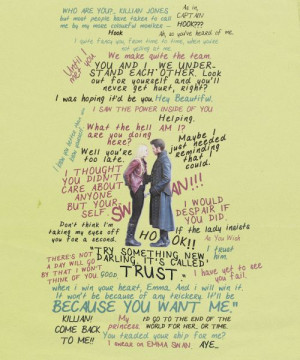 WHO ARE YOU?, KILLIAN JONES
but most people have taken to call
me by my more colourful moniker -
Hook
As in,
CAPTAIN
HOOK???
Ah so you've heard of me.
I quite fancy you from time to time, when you're
not yelling at me.
Until I
met you
We make quite the team
YOU AND I WE UNDER-
STAND EACH OTHER. Look
out for yourself and you'll
never get hurt, right?
I was hoping it'd be you. Hey Beautiful.
I SAW THE POWER INSIDE OF YOU
Helping.
What the hell AM I?
are you doing
here?
Maybe I
just needed
reminding
that I
could.
Well you're
too late.
I THOUGHT
YOU DIDN'T
CARE ABOUT
ANYONE
BUT YOUR-
SELF. SWAN!!!
I WOULD
DESPAIR IF
YOU DID.
Don't think I'm
taking my eyes off
you for a second.
HOOK!!
If the lady insists
As You Wish
I trust
him
THERE'S NOT
A DAY WILL GO
BY THAT I WON'T
THINK OF YOU. GOOD.
"TRY SOMETHING NEW,
DARLING. IT'S CALLED
TRUST."
I have yet to see
you fail.
when i win your heart, Emma, And i will win it.
It won't be because of any trickery. It'll be
BECAUSE YOU WANT ME"
KILLIAN!
COME BACK
TO ME!!
My
princess
I'D GO TO THE END OF THE
WORLD FOR HER, OR TIME.
You traded your ship for me?
I swear on EMMA SWAN,
AYE